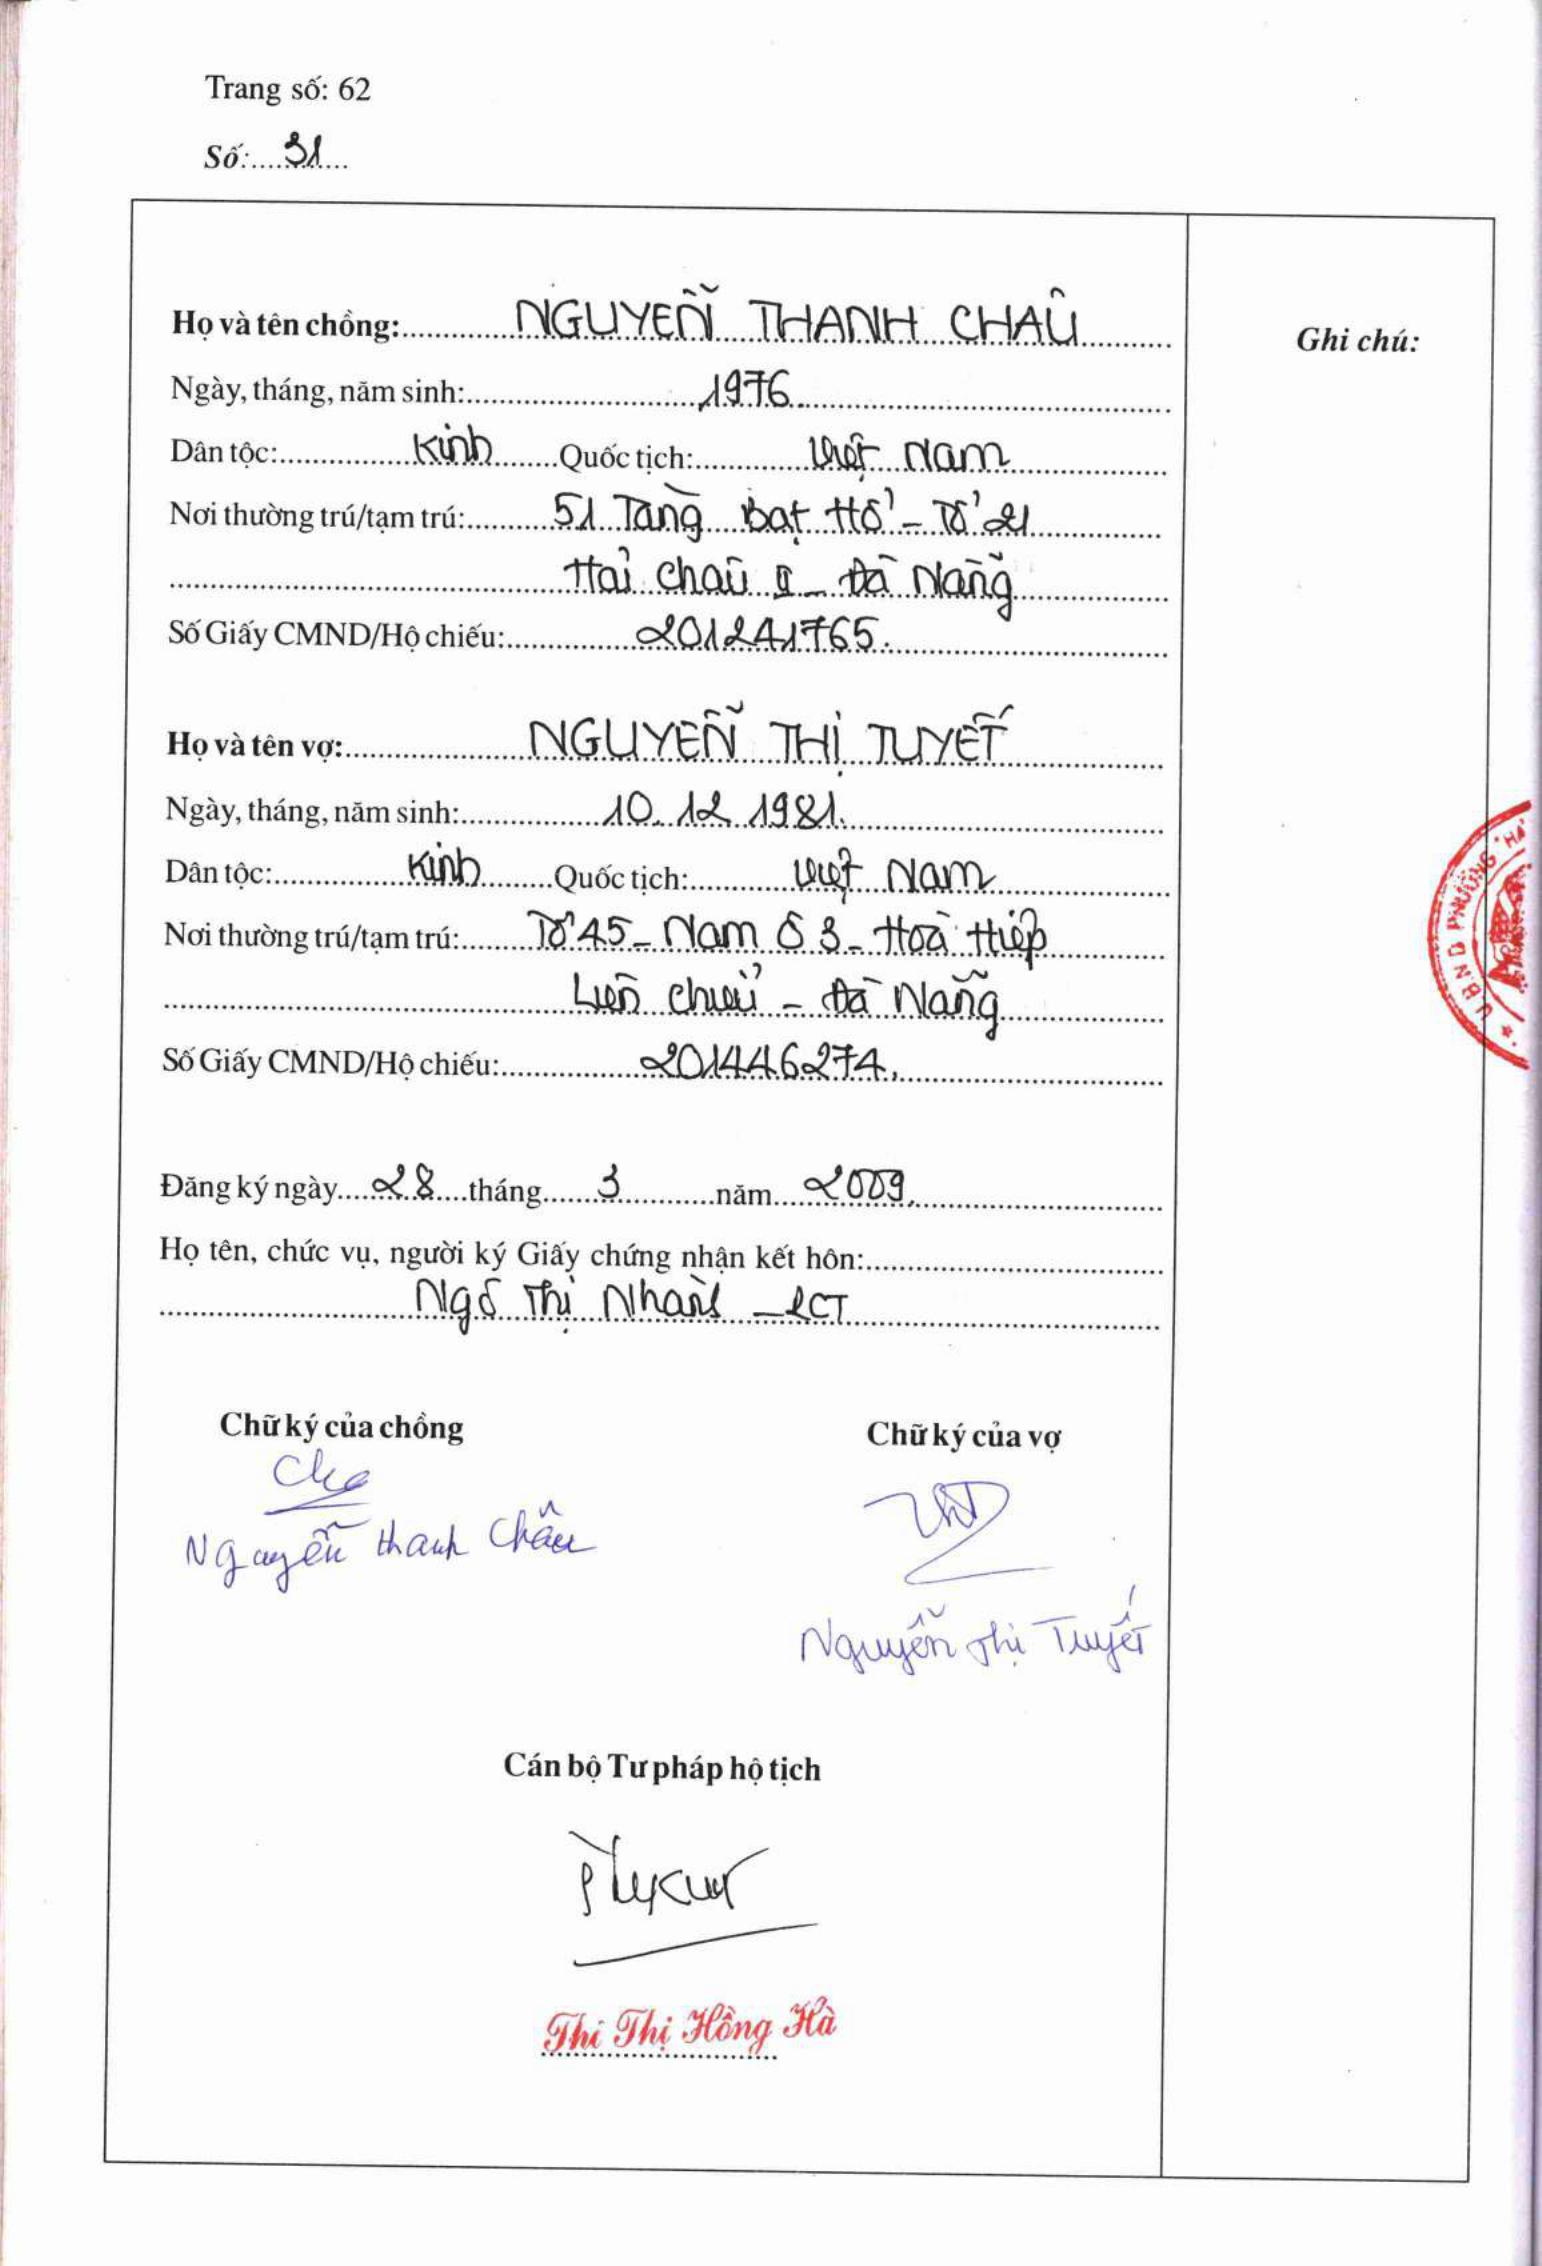 Trang số: 62
Số: 31
Họ và tên chồng: NGUYỄN THANH CHÂU
Ghi chú:
Ngày, tháng, năm sinh: 1976
Dân tộc: Kinh Quốc tịch: Việt Nam
Nơi thường trú/tạm trú: 51 Tăng Bạt Hổ - Tổ 21
Hải Châu II - Đà Nẵng
Số Giấy CMND/Hộ chiếu: 201241765.
Họ và tên vợ: NGUYỄN THỊ TUYẾT
Ngày, tháng, năm sinh: 10.12.1981.
Dân tộc: Kinh Quốc tịch: Việt Nam
Nơi thường trú/tạm trú: Tổ 45 - Nam Ô 3 - Hoà Hiệp
Liên Chiểu - Đà Nẵng
Số Giấy CMND/Hộ chiếu: 201446274.
Đăng ký ngày 28 tháng 3 năm 2009.
Họ tên, chức vụ, người ký Giấy chứng nhận kết hôn:
Ngô Thị Nhàn - PCT
Chữ ký của chồng
Chữ ký của vợ
Nguyễn Thanh Châu
Nguyễn Thị Tuyết
Cán bộ Tư pháp hộ tịch
Thi Thị Hồng Hà
U.B.N.D PHƯỜNG HẢ